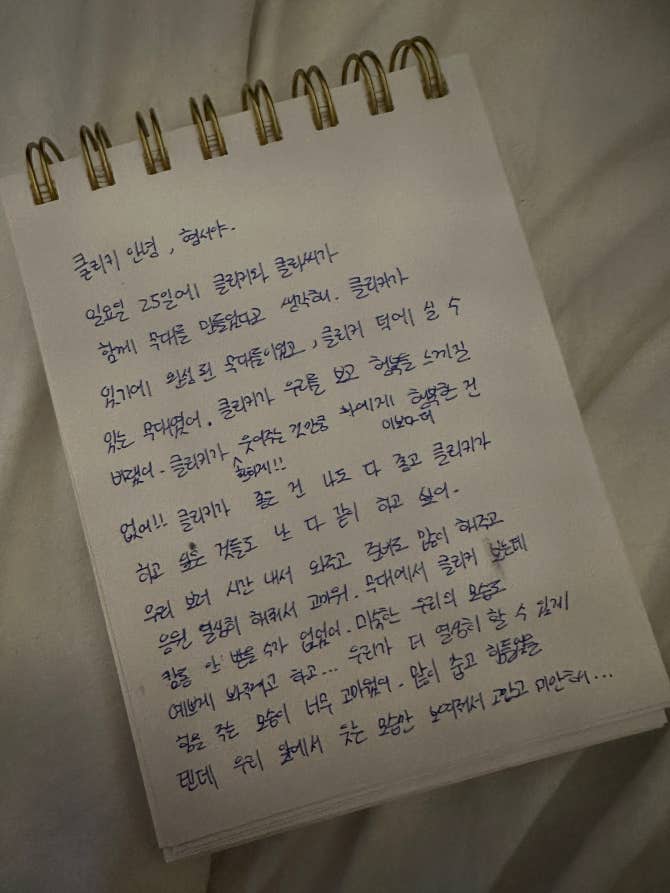 클리커 안녕, 형서야.
일요일 25일에 클리커와 클라씨가
함께 무대를 만들었다고 생각해. 클리커가
있기에 완성된 무대들이었고, 클리커 덕에 설 수
있는 무대였어. 클리커가 우리를 보고 행복을 느끼길
바랬어. 클리커가 웃어주는 것만큼 나에게 행복한 건
솔직하게!! 이보다 더
없어!! 클리커가 좋은 건 나도 다 좋고 클리커가
하고 싶은 것들도 난 다 같이 하고 싶어.
우리 보러 시간 내서 와주고 준비도 많이 해주고
응원 열심히 해줘서 고마워. 무대에서 클리커 보는데
감동 안 받을 수가 없었어. 미숙한 우리의 모습도
예쁘게 봐주려고 하고... 우리가 더 열심히 할 수 있게
힘을 주는 모습이 너무 고마웠어. 많이 춥고 힘들었을
텐데 우리 앞에서 웃는 모습만 보여줘서 고맙고 미안해...